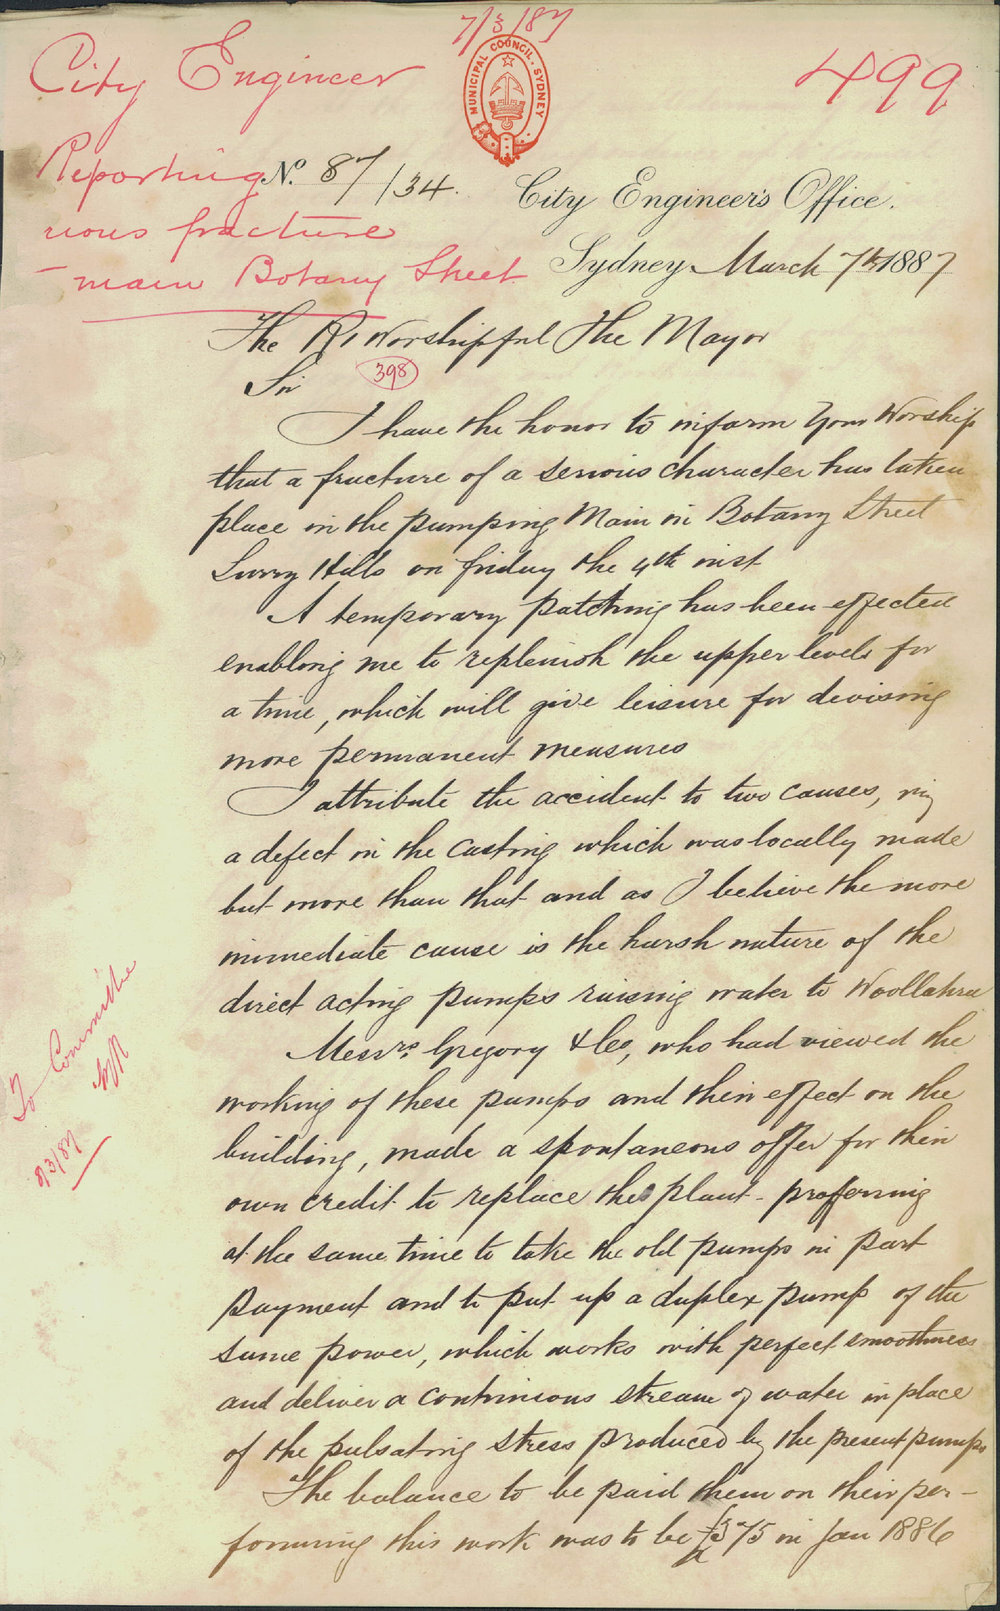 7/3/87
MUNICIPAL COUNCIL. SYDNEY
499
City Engineer
Reporting
rious fracture
main Botany Street
No. 87/134.
City Engineer's Office.
Sydney March 7th 1887
The Rt Worshipful The Mayor
Sir
398
I have the honor to inform Your Worship
that a fracture of a serious character has taken
place in the pumping Main in Botany Street
Surry Hills on friday the 4th inst
A temporary patching has been effected
enabling me to replenish the upper levels for
a time, which will give leisure for devising
more permanent measures
I attribute the accident to two causes, viz
a defect in the casting which was locally made
but more than that and as I believe the more
immediate cause is the harsh nature of the
direct acting pumps raising water to Woollahra
Messrs. Gregory & Co, who had viewed the
working of these pumps and their effect on the
building, made a spontaneous offer for their
own credit to replace the plant - proffering
at the same time to take the old pumps in part
payment and to put up a duplex pump of the
same power, which works with perfect smoothness
and deliver a continuous stream of water in place
of the pulsating stress produced by the present pumps
The balance to be paid them on their per-
forming this work was to be £375 in Jan 1886
To Committee
8/3/87